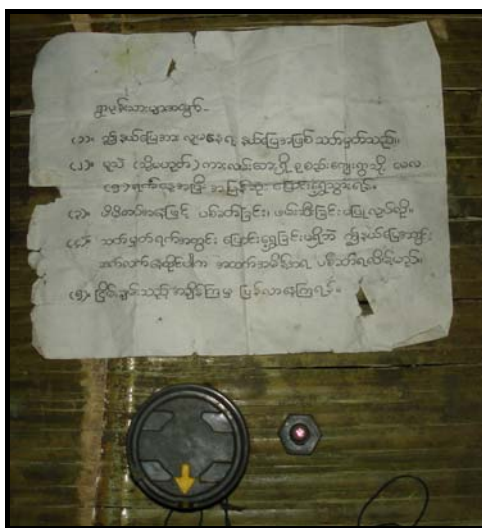 ရွာပုန်းသားများအတွက် -
(၁)။ ဤနယ်မြေအား လူမနေရ နယ်မြေအဖြစ် သတ်မှတ်သည်။
(၂)။ မူသဲ (သို့မဟုတ်) ကားလမ်းဘေးရှိ စုစည်းကျေးရွာသို့ ယလ
ရက်နေ့အပြီး အမြန်ဆုံး ပြောင်းရွှေ့သွားရန်။
(၃)။ မိမိတပ်အနေဖြင့် ပစ်ခတ်ခြင်း၊ ဖမ်းဆီးခြင်း မပြုလုပ်လို။
(၄)။ သတ်မှတ်ရက်အတွင်း ပြောင်းရွှေ့ခြင်းမရှိဘဲ ဤနယ်မြေအတွင်း
ဆက်လက်နေထိုင်ပါက အထက်အမိန့်အရ ပစ်ခတ်ရလိမ့်မည်။
(၅)။ ငြိမ်းချမ်းသည့် အချိန်ကြမှ ပြန်လာနေကြရန်။